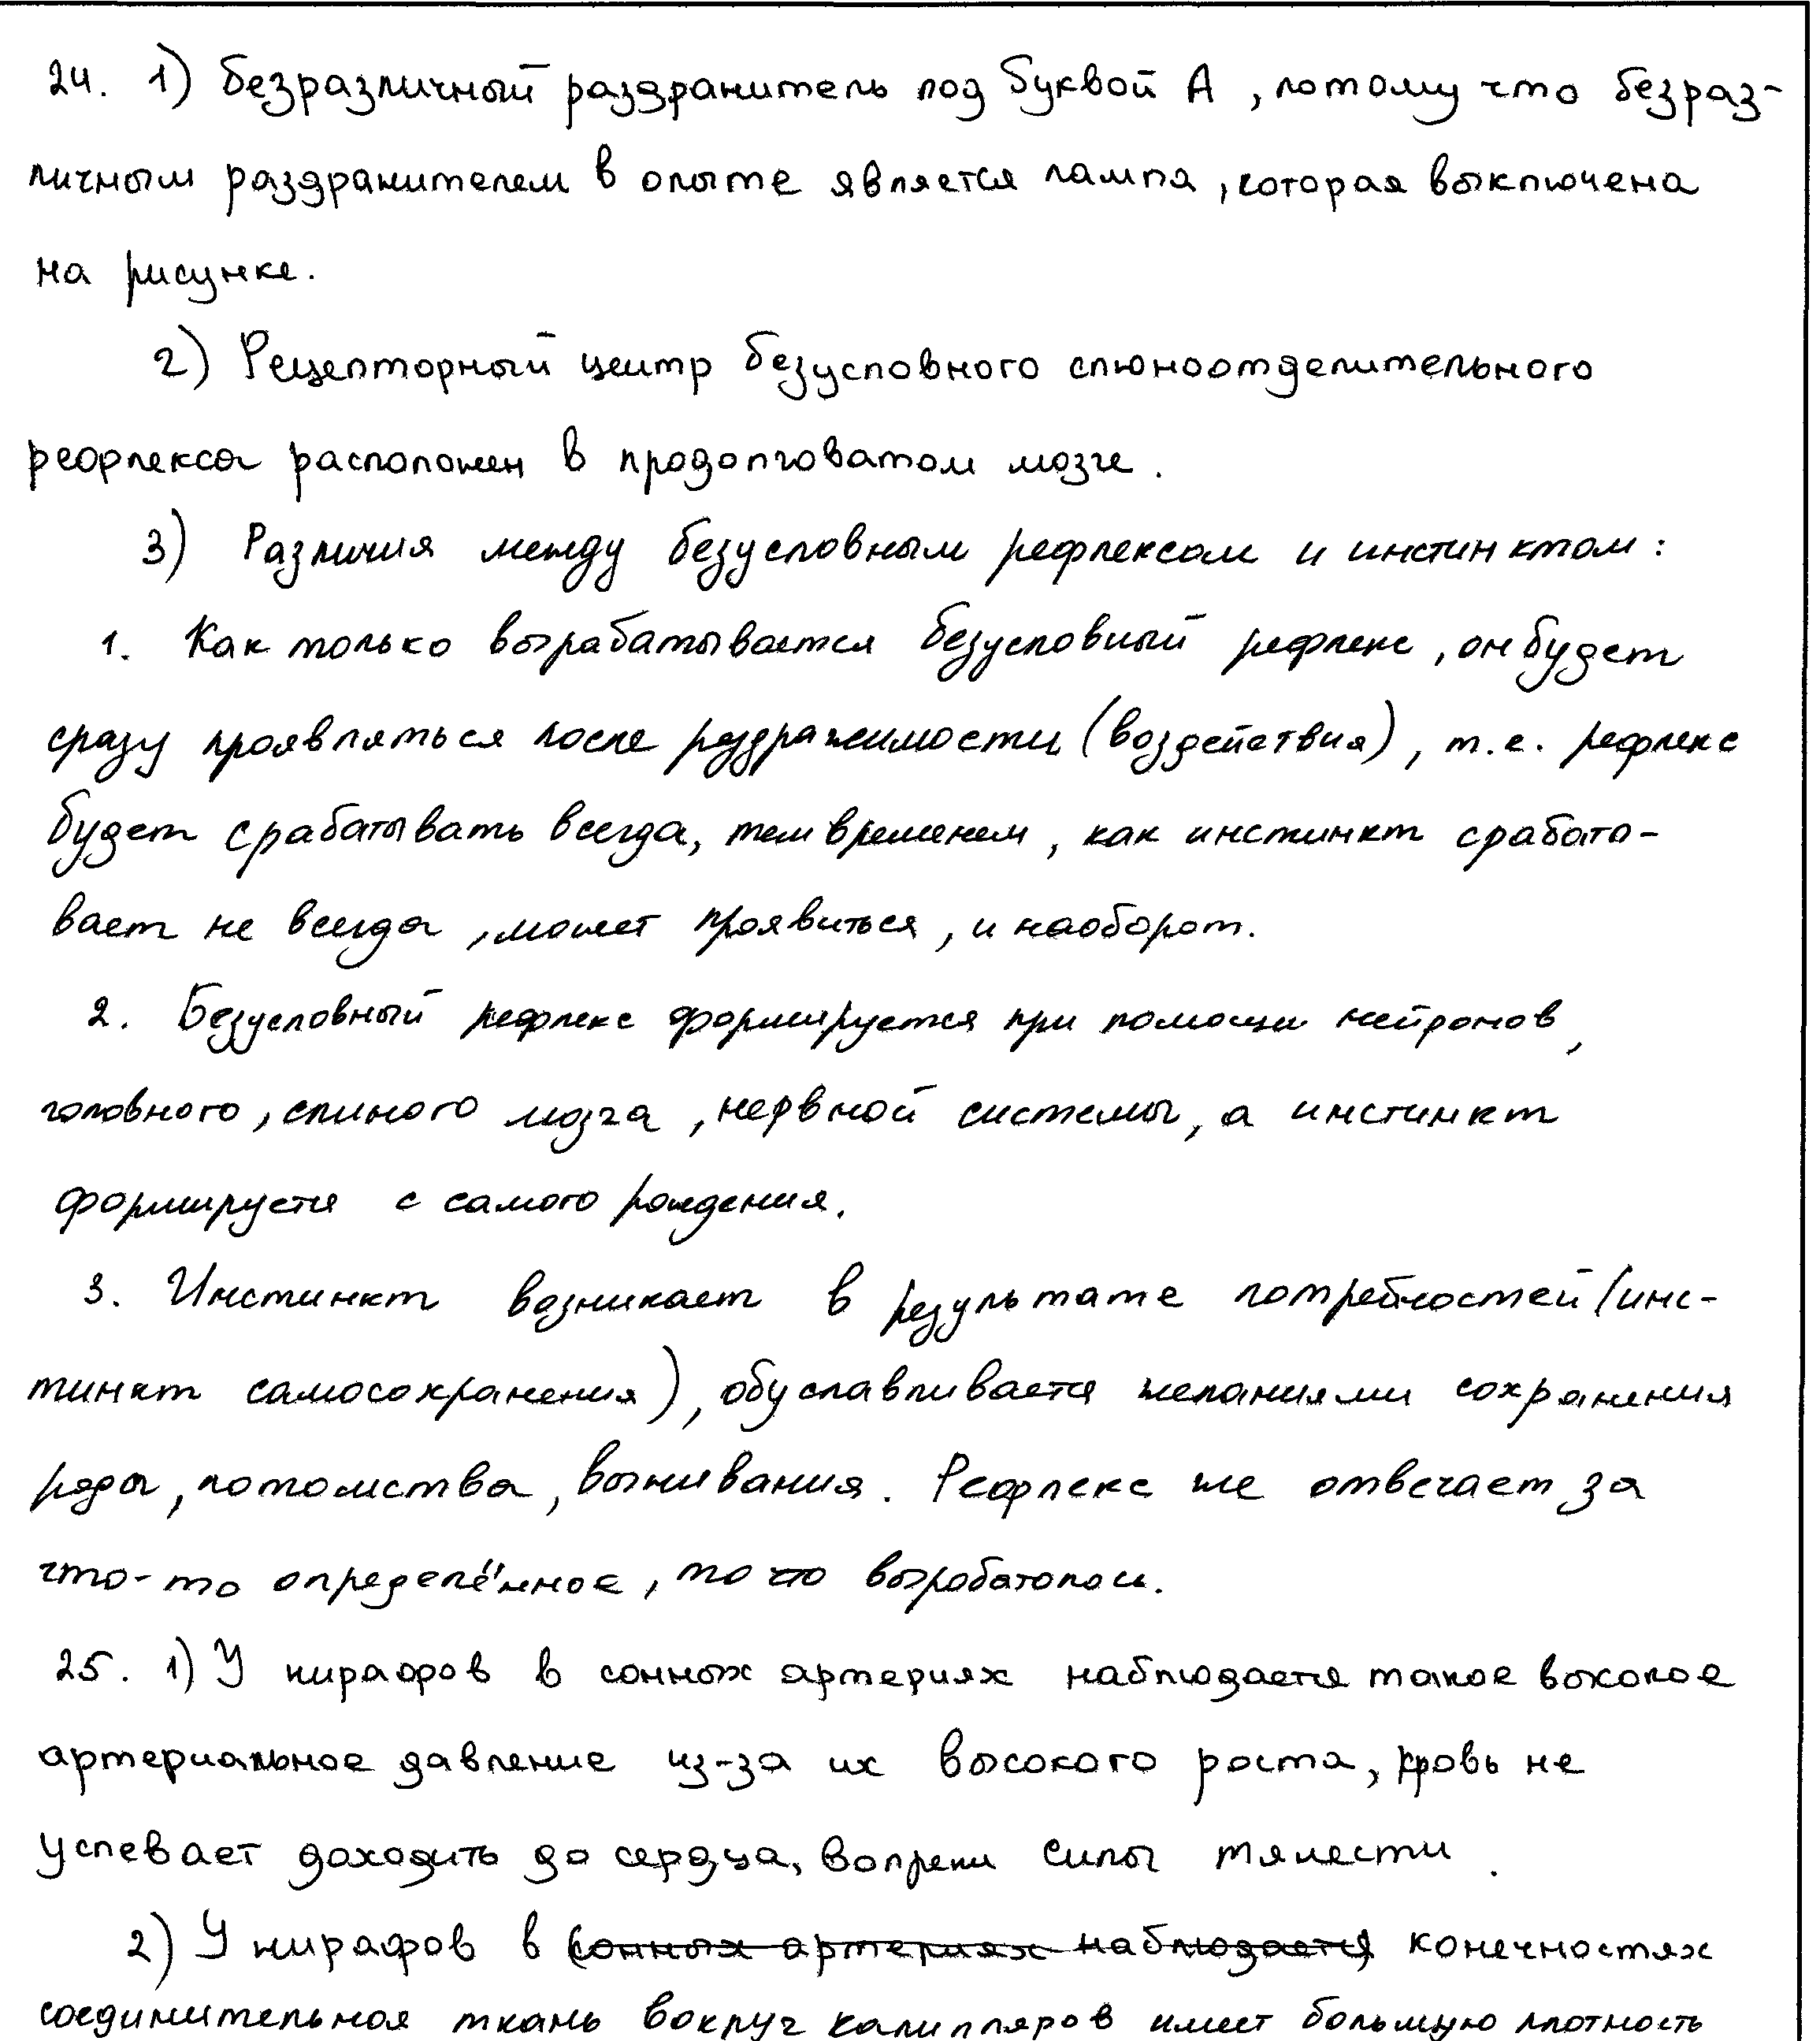 24. 1) Безразличный раздранитель под буквой А, потому что безраз-
личным раздранителем в опыте является лампа, которая выключена
на рисунке.
2) Рецепторный центр безусловного слюноотделительного
рефлекса расположен в продолговатом мозге.
3) Различия между безусловным рефлексом и инстинктом:
1. Как только вырабатывается безусловный рефлекс, он будет
сразу проявляться после раздражимости (воздействия), т.е. рефлекс
будет срабатывать всегда, тем временем, как инстинкт срабаты-
вает не всегда, может проявиться, и наоборот.
2. Безусловный рефлекс формируется при помощи нейронов,
головного, спиного мозга, нервной системы, а инстинкт
формируется с самого рождения.
3. Инстинкт возникает в результате потребностей (инс-
тинкт самосохранения), обуславливается желаниями сохранения
рода, потомства, выживания. Рефлекс же отвечает за
что-то определённое, то что выработалось.
25. 1) У жирафов в сонных артериях наблюдается такое высокое
артериальное давление из-за их высокого роста, кровь не
успевает доходить до сердца, вопреки силы тяжести.
2) У жирафов в сонных артериях наблюдается конечностях
соединительная ткань вокруг капилляров имеет большую плотность